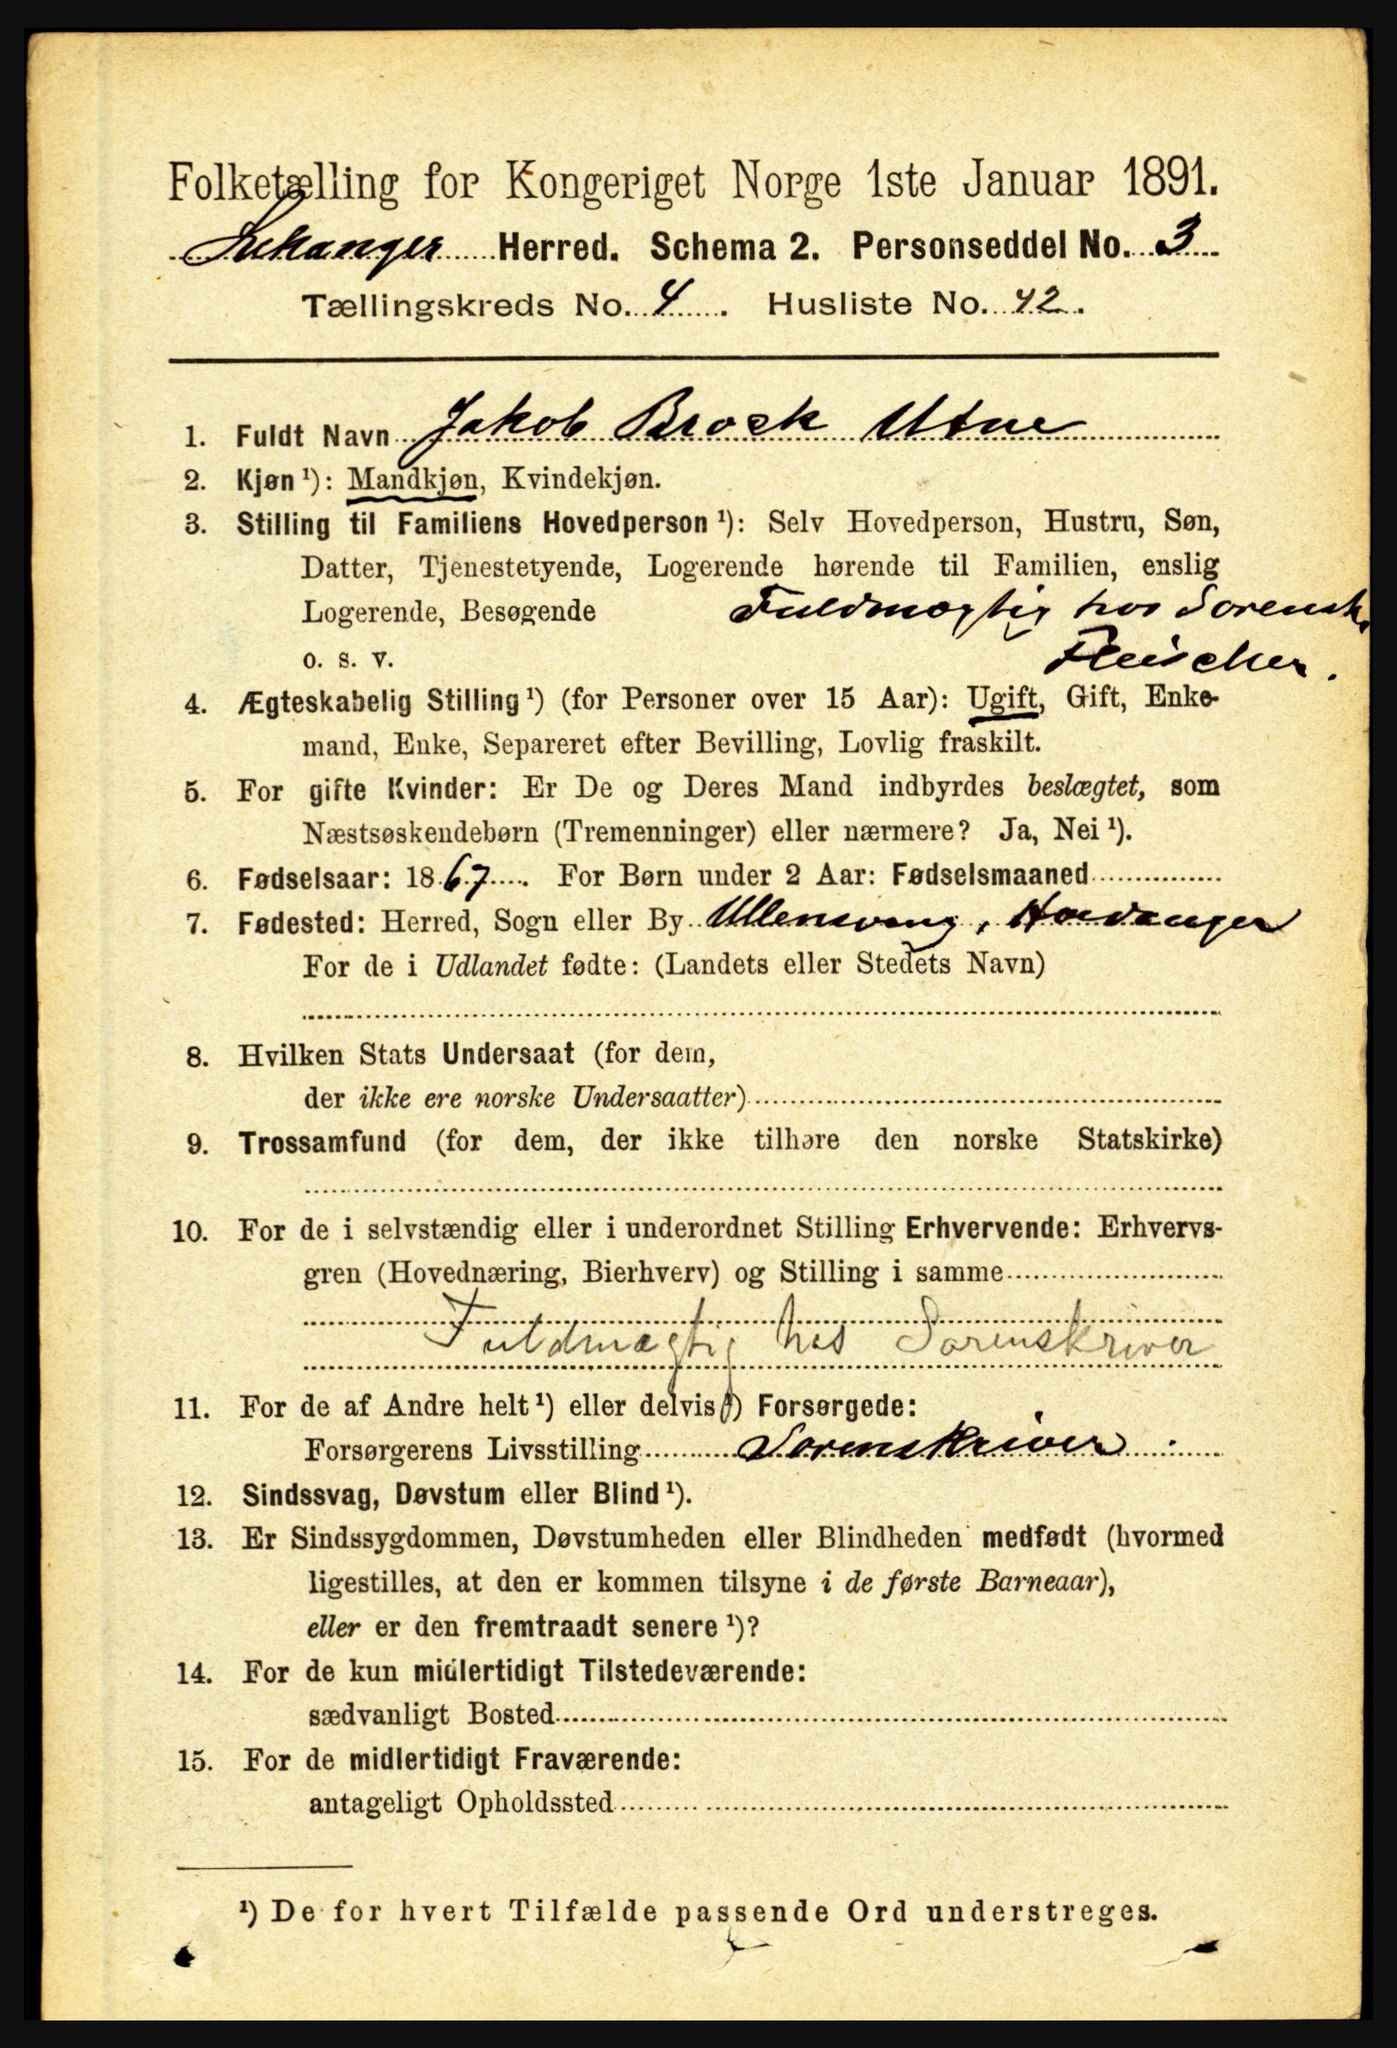 Folketælling for Kongeriget Norge 1ste Januar 1891.
Leikanger Herred. Schema 2. Personseddel No. 3
Tællingskreds No. 4. Husliste No. 42.
1. Fuldt Navn Jakob Brock Utne
2. Kjøn ¹): Mandkjøn, Kvindekjøn.
3. Stilling til Familiens Hovedperson ¹): Selv Hovedperson, Hustru, Søn,
Datter, Tjenestetyende, Logerende hørende til Familien, enslig
Logerende, Besøgende Fuldmægtig hos Sorensk.
o. s. v. Fleischer.
4. Ægteskabelig Stilling ¹) (for Personer over 15 Aar): Ugift, Gift, Enke-
mand, Enke, Separeret efter Bevilling, Lovlig fraskilt.
5. For gifte Kvinder: Er De og Deres Mand indbyrdes beslægtet, som
Næstsøskendebørn (Tremenninger) eller nærmere? Ja, Nei ¹).
6. Fødselsaar: 1867. For Børn under 2 Aar: Fødselsmaaned
7. Fødested: Herred, Sogn eller By Ullensvang, Hardanger
For de i Udlandet fødte: (Landets eller Stedets Navn)
8. Hvilken Stats Undersaat (for dem,
der ikke ere norske Undersaatter)
9. Trossamfund (for dem, der ikke tilhøre den norske Statskirke)
10. For de i selvstændig eller i underordnet Stilling Erhvervende: Erhvervs-
gren (Hovednæring, Bierhverv) og Stilling i samme
Fuldmægtig hos Sorenskriver
11. For de af Andre helt ¹) eller delvis ¹) Forsørgede:
Forsørgerens Livsstilling Sorenskriver
12. Sindssvag, Døvstum eller Blind ¹).
13. Er Sindssygdommen, Døvstumheden eller Blindheden medfødt (hvormed
ligestilles, at den er kommen tilsyne i de første Barneaar),
eller er den fremtraadt senere ¹)?
14. For de kun midlertidigt Tilstedeværende:
sædvanligt Bosted
15. For de midlertidigt Fraværende:
antageligt Opholdssted
¹) De for hvert Tilfælde passende Ord understreges.